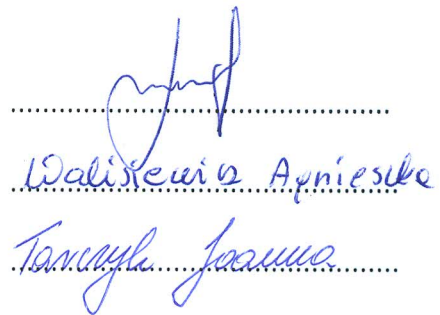 Walisiewicz Agnieszka
Tarczyk Joanna